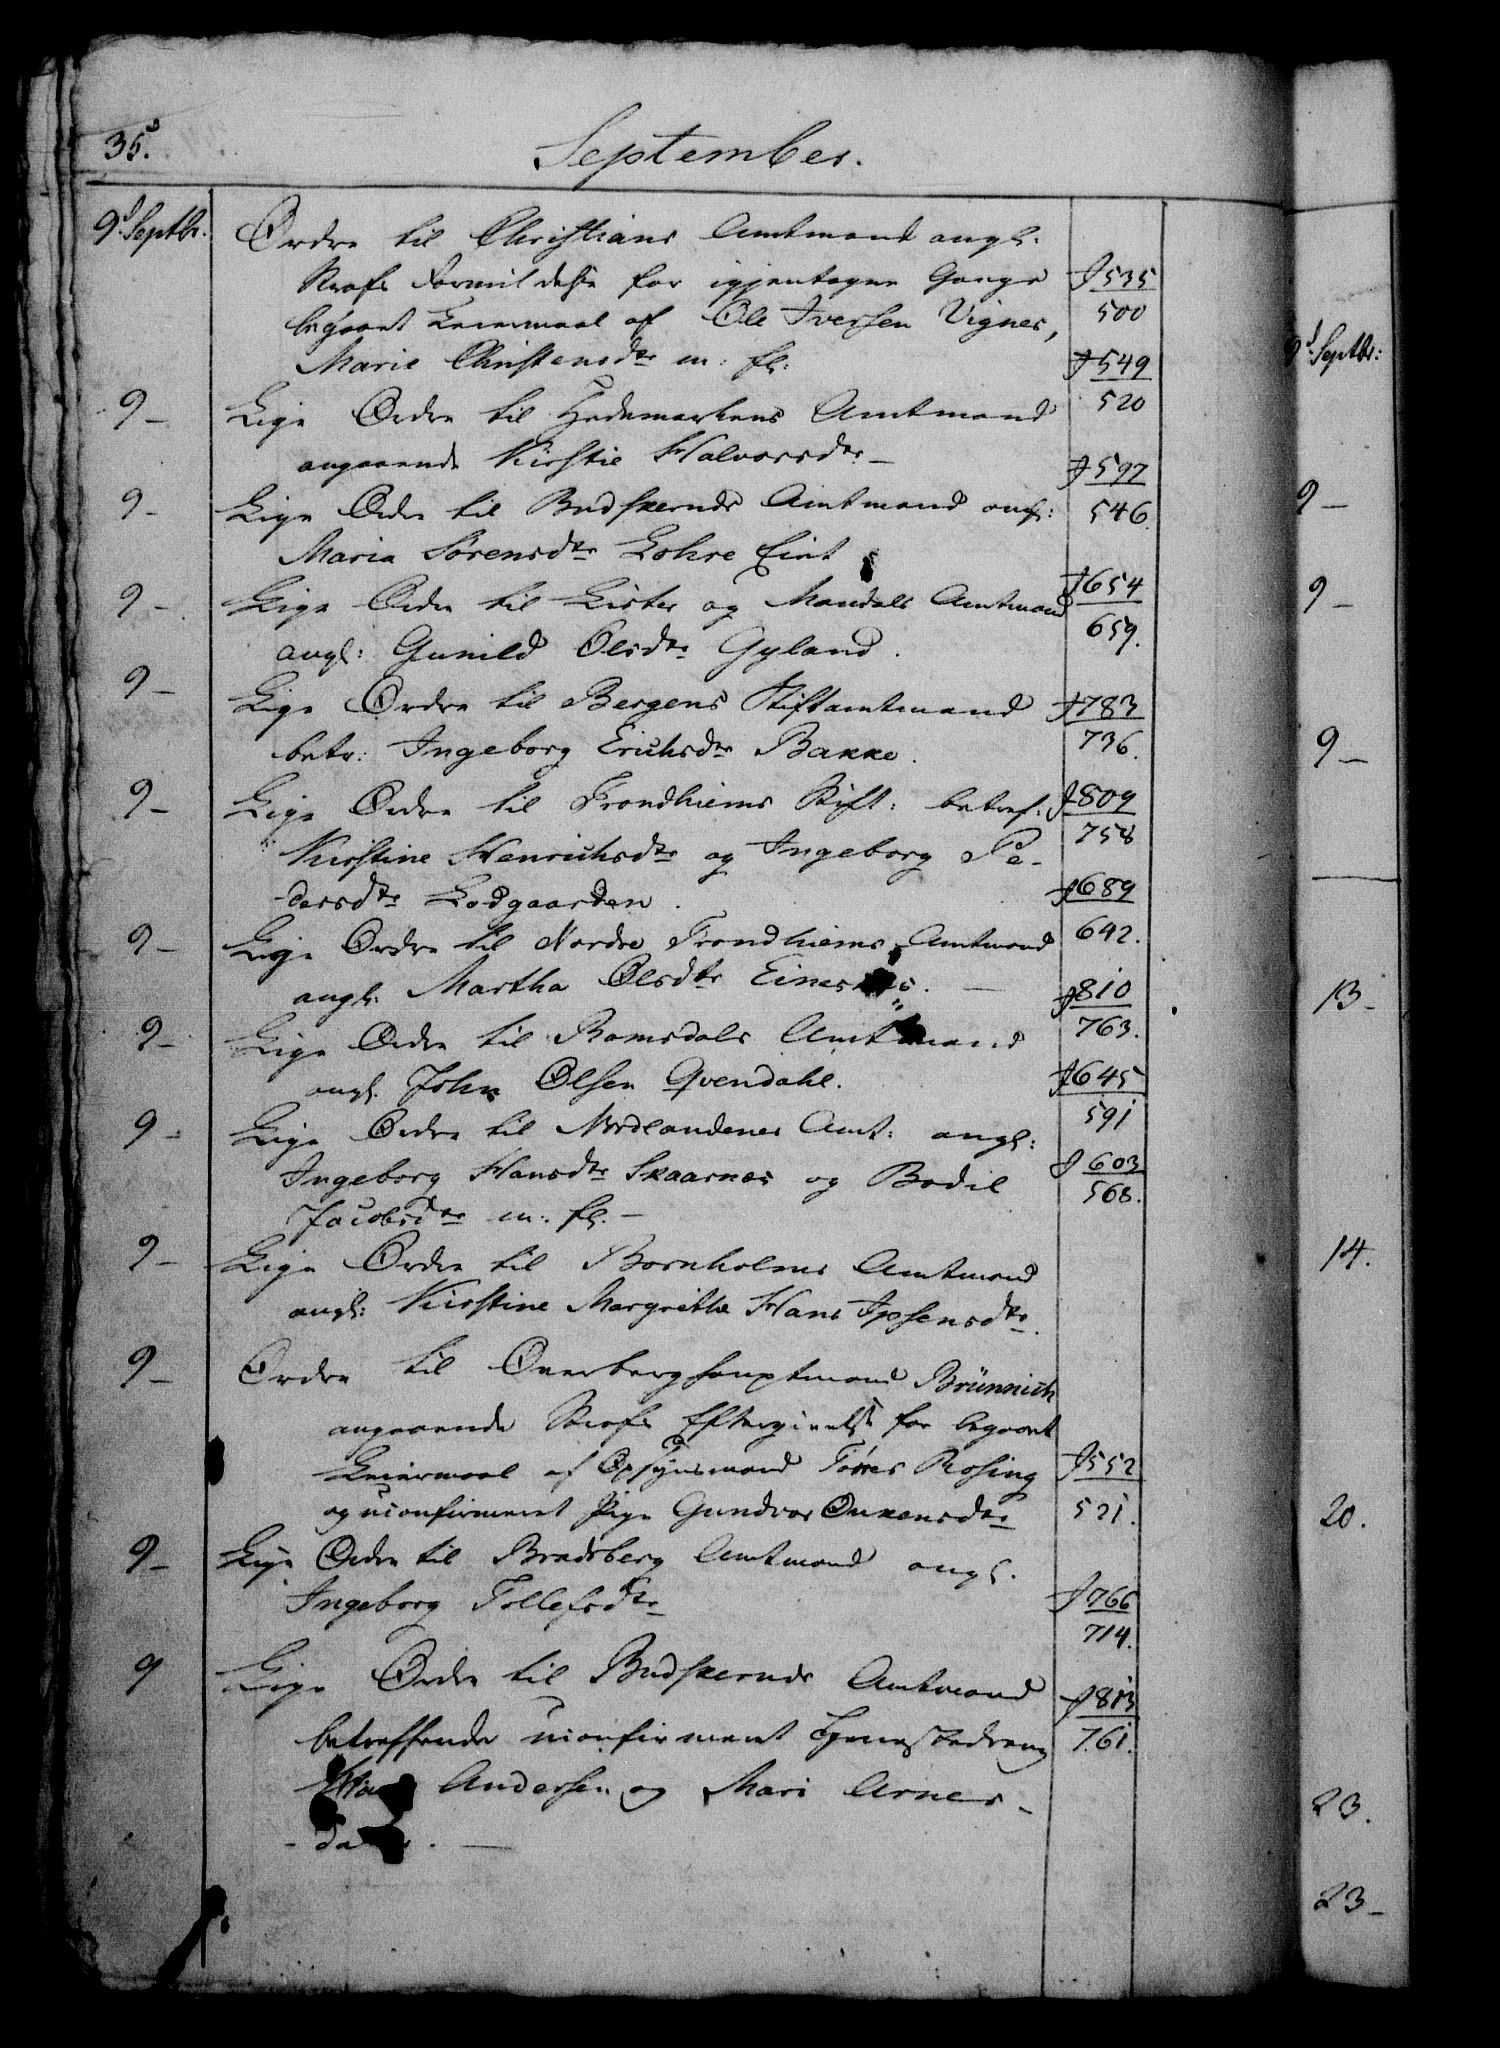 35.
September.
9d Septbr. Ordre til Christians Amtmand angl:
Strafs Formildelse for igjentagne Gange J 535
begaaet Leiermaal af Ole Iversen Vignes, 500
Marie Christensdtr m: fl: J 549
9 – Lige Ordre til Hedemarkens Amtmand 520
angaaende Kirstie Halvorsdtr – J 597
9 – Lige Ordre til Budskeruds Amtmand angl: 546.
Maria Sörensdtr Lohre Eiet J 654
9 – Lige Ordre til Lister og Mandals Amtmand
659.
angl: Gunild Olsdtr Gyland.
9 – Lige Ordre til Bergens Stiftamtmand J 783
betr: Ingeborg Erichsdtr Bakke. 736.
9 – Lige Ordre til Trondhiems Stift: betref: J 809
Kirstine Henrichsdtr og Ingeborg Pe- 758
dersdtr Lodgaarden. J 689
9 – Lige Ordre til Nordre Trondhiems Amtmand 642.
angl: Martha Olsdtr J 810
9 – Lige Ordre til Romsdals Amtmand 763.
angl. John Olsen Qvendahl. J 645
9 – Lige Ordre til Nordlandenes Amt: angl: 591
Ingeborg Hansdtr Skaarnes og Bodil J 603
568.
Jacobsdtr m: fl. –
9 – Lige Ordre til Bornholms Amtmand
angl: Kirstine Margrethe Hans Ipsensdtr.
9 – Ordre til Overberghauptmand Brünnich
angaaende Strafs Eftergivelse for begaaet
Leiermaal af Opsynsmand Törres Rosing J 552
og uconfirmeret Pige Gundvor Onkensdtr 521.
9 – Lige Ordre til Bradsberg Amtmand angl.
Ingeborg Tollefsdtr J 766
714.
9 Lige Ordre til Budskeruds Amtmand J 813
betreffende uconfirmeret Tjenestedreng 761.
Andersen og Mari Arnes-
9d Septbr:
9 –
9 –
9 –
13 –
14.
20.
23.
23 –